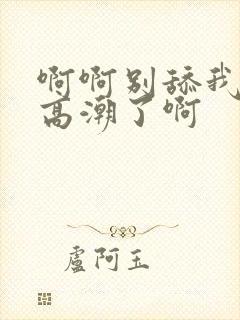 啊啊别舔我
高潮了啊
盧阿玉